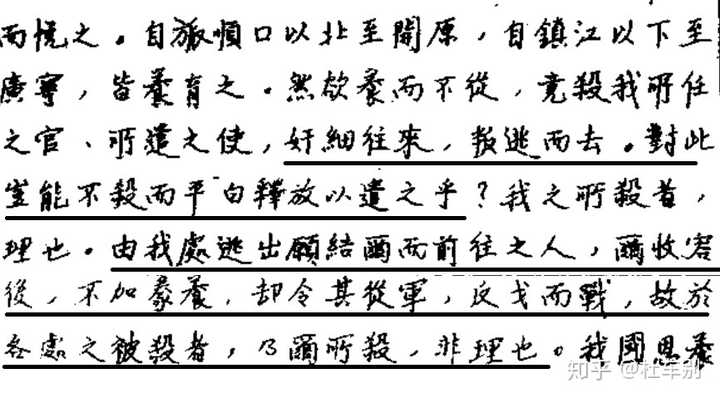 而悅之。自旅順口以北至開原，自鎮江以下至
廣寧，皆養育之。然欲養而不從，竟殺我所任
之官、所遣之使，奸細往來，叛逃而去。對此
豈能不殺而平白釋放以遣之乎？我之所殺者，
理也。由我處逃出願結爾而前往之人，爾收容
後，不加豢養，却令其從軍，反戈而戰，故於
各處之被殺者，乃爾所殺，非理也。我國恩養
知乎 @杜车别